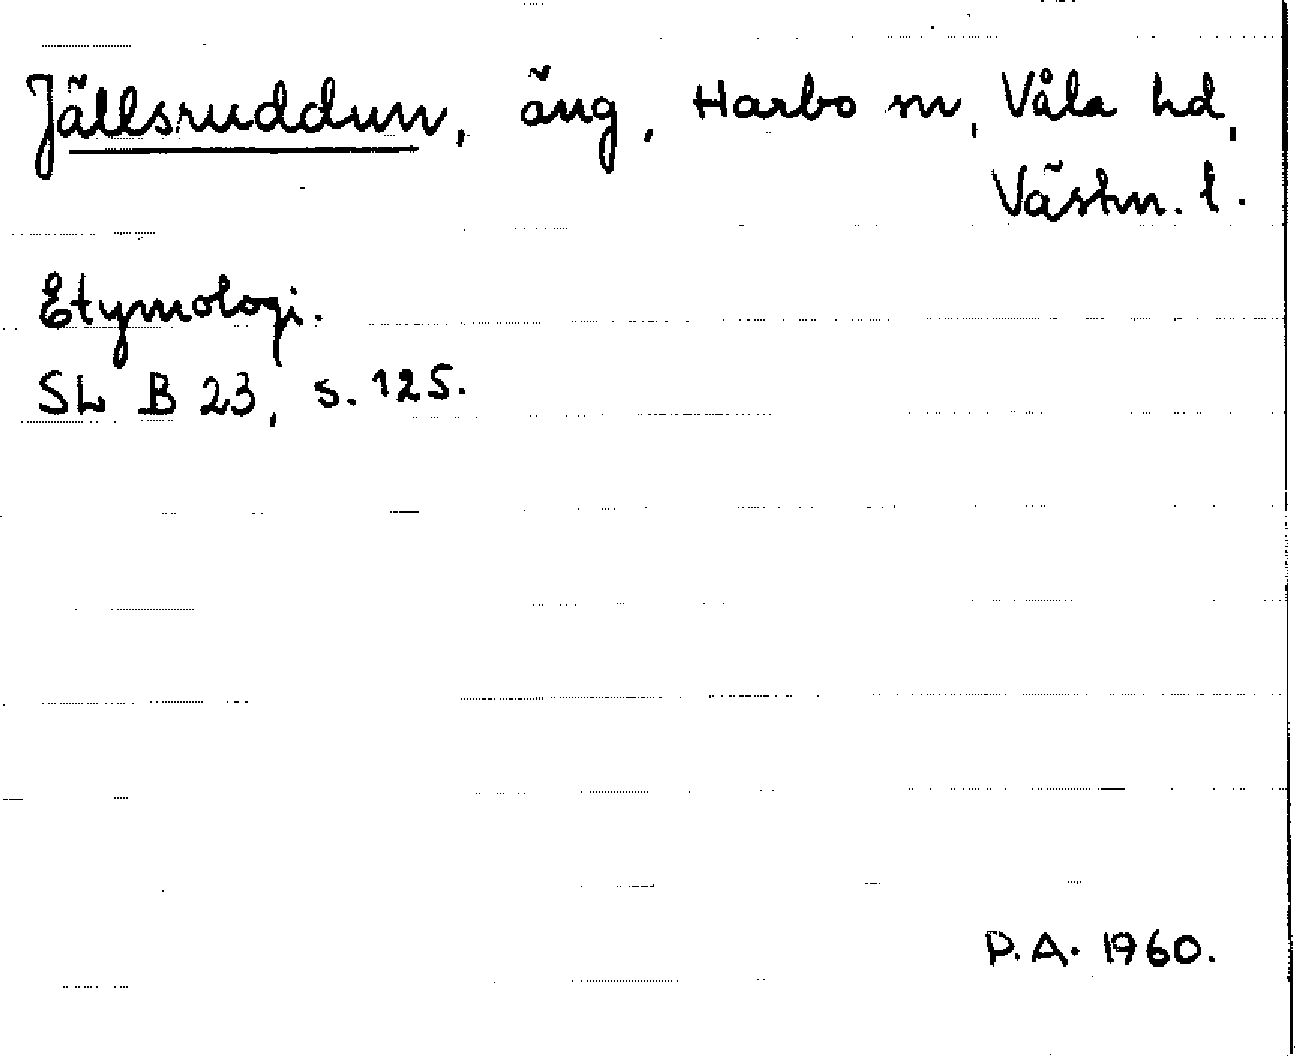 Jällsruddun, äng, Harbo sn, Våla hd,
Västm. l.
Etymologi.
SL B 23, s. 125.
P.A. 1960.